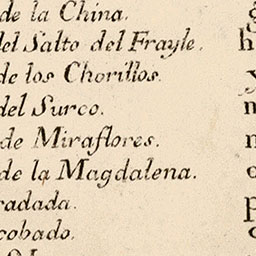 de la China.
del Salto del Frayle.
de los Chorillos.
del Surco.
de Miraflores.
de la Magdalena.
radada.
cobado.